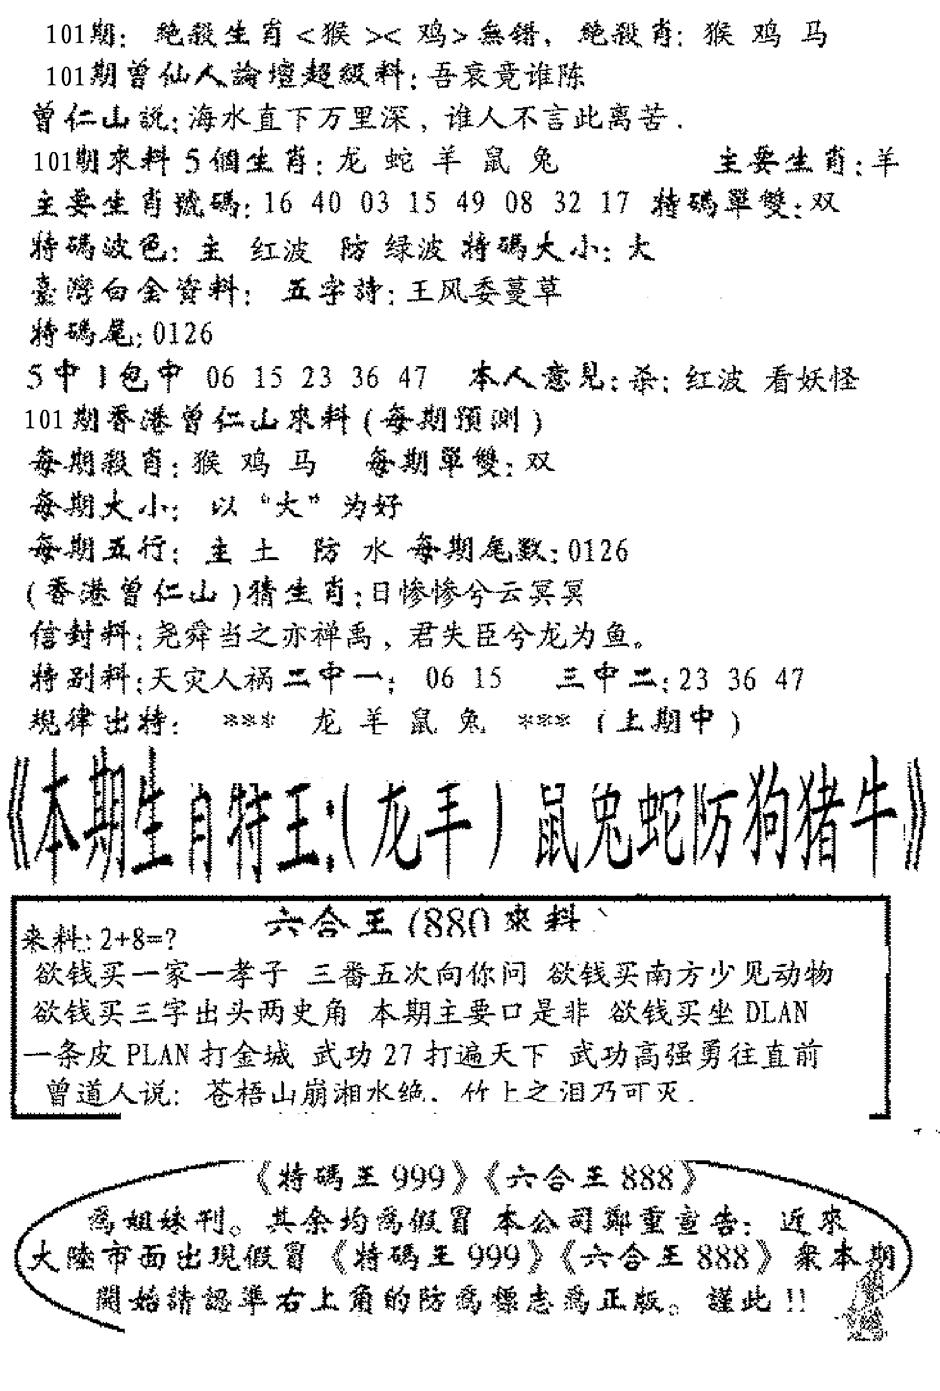 101期: 絶殺生肖<猴><鸡>無错, 绝殺肖: 猴 鸡 马
101期曾仙人論壇超級料:吾衰竟谁陈
曾仁山説:海水直下万里深, 谁人不言此离苦.
101期來料 5 個生肖: 龙 蛇 羊 鼠 兔 主要生肖:羊
主要生肖號碼:16 40 03 15 49 08 32 17 特碼單雙:双
特碼波色: 主 红波 防 绿波 特碼大小: 大
臺灣白金資料: 五字詩:王风委蔓草
特碼尾:0126
5 中 1 包中 06 15 23 36 47 本人意見:杀: 红波 看妖怪
101期香港曾仁山來料(每期預測)
每期殺肖:猴 鸡 马 每期單雙:双
每期大小: 以“大”为好
每期五行: 主 土 防 水 每期尾数:0126
(香港曾仁山)猜生肖:日惨惨兮云冥冥
信封料:尧舜当之亦禅禹, 君失臣兮龙为鱼。
特别料:天灾人祸二中一: 06 15 三中二:23 36 47
規律出特: *** 龙 羊 鼠 兔 *** (上期中)
《本期生肖特王:(龙羊)鼠兔蛇防狗猪牛》
六合王(88()來料
来料:2+8=?
欲钱买一家一孝子 三番五次向你问 欲钱买南方少见动物
欲钱买三字出头两史角 本期主要口是非 欲钱买坐 DLAN
一条皮 PLAN 打金城 武功 27 打遍天下 武功高强勇往直前
曾道人说: 苍梧山崩湘水绝. 竹上之泪乃可灭.
《特碼王 999》《六合王 888》
為姐妹刊。其余均為假冒 本公司鄭重查告: 近來
大陸市面出現假冒《特碼王 999》《六合王 888》衆本期
開始請認準右上角的防為標志為正版。謹此!!